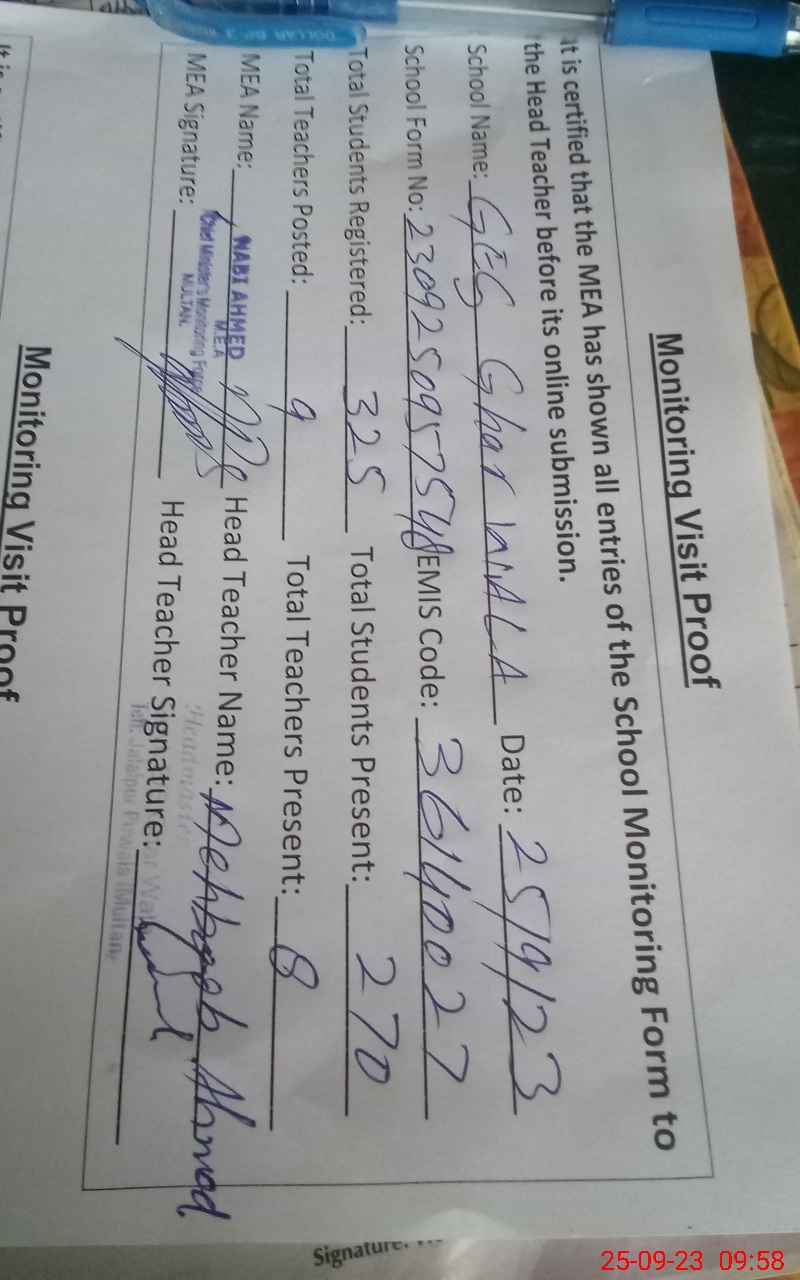 Monitoring Visit Proof
It is certified that the MEA has shown all entries of the School Monitoring Form to
the Head Teacher before its online submission.
School Name: GES Ghar WALA Date: 25/9/23
School Form No: EMIS Code: 36140027
Total Students Registered: 325 Total Students Present: 270
Total Teachers Posted: 9 Total Teachers Present: 8
MEA Name: NABI AHMED Head Teacher Name: Mehboob Ahmad
M.E.A
Chief Minister's Monitoring Force
MULTAN.
MEA Signature: Head Teacher Signature:
Headmaster
Jalalpur Pirwala (Multan)
Monitoring Visit Proof
It is
Signature:
DOLLAR
25-09-23 09:58